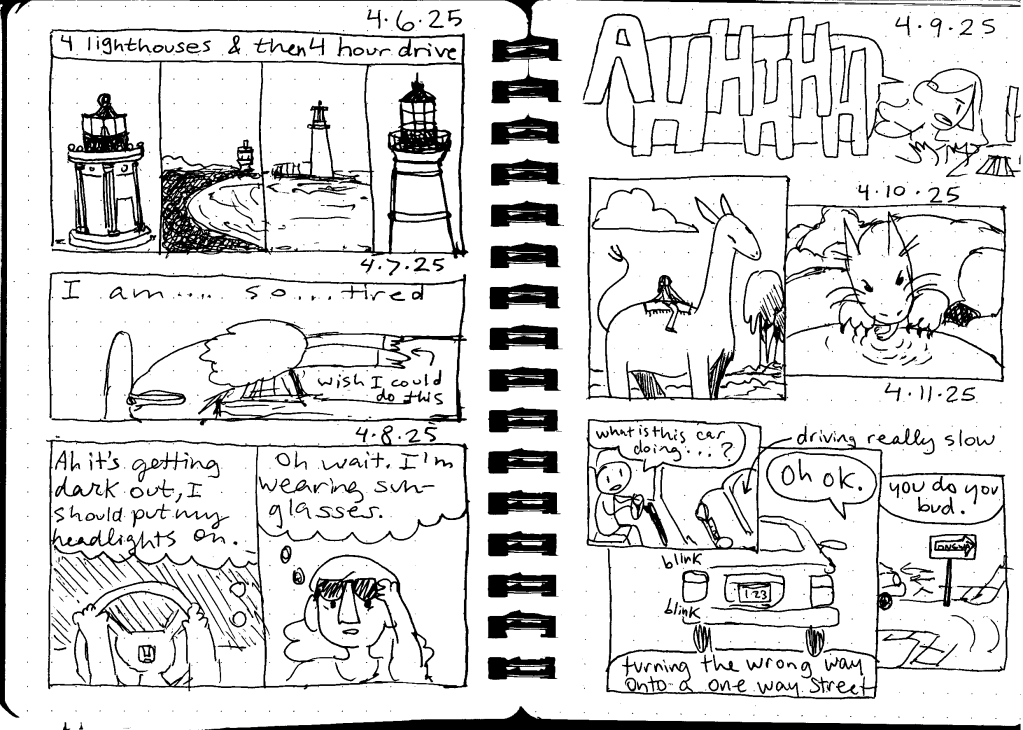 4.6.25
4 lighthouses & then 4 hour drive
4.7.25
I am.... so... tired
wish I could
do this
4.8.25
Ah it's getting
dark out, I
should put my
headlights on.
Oh wait. I'm
wearing sun-
glasses.
4.9.25
AHHHHHHHH
4.10.25
4.11.25
what is this car
doing...?
driving really slow
Oh ok.
you do you
bud.
blink
blink
123
turning the wrong way
onto a one way street